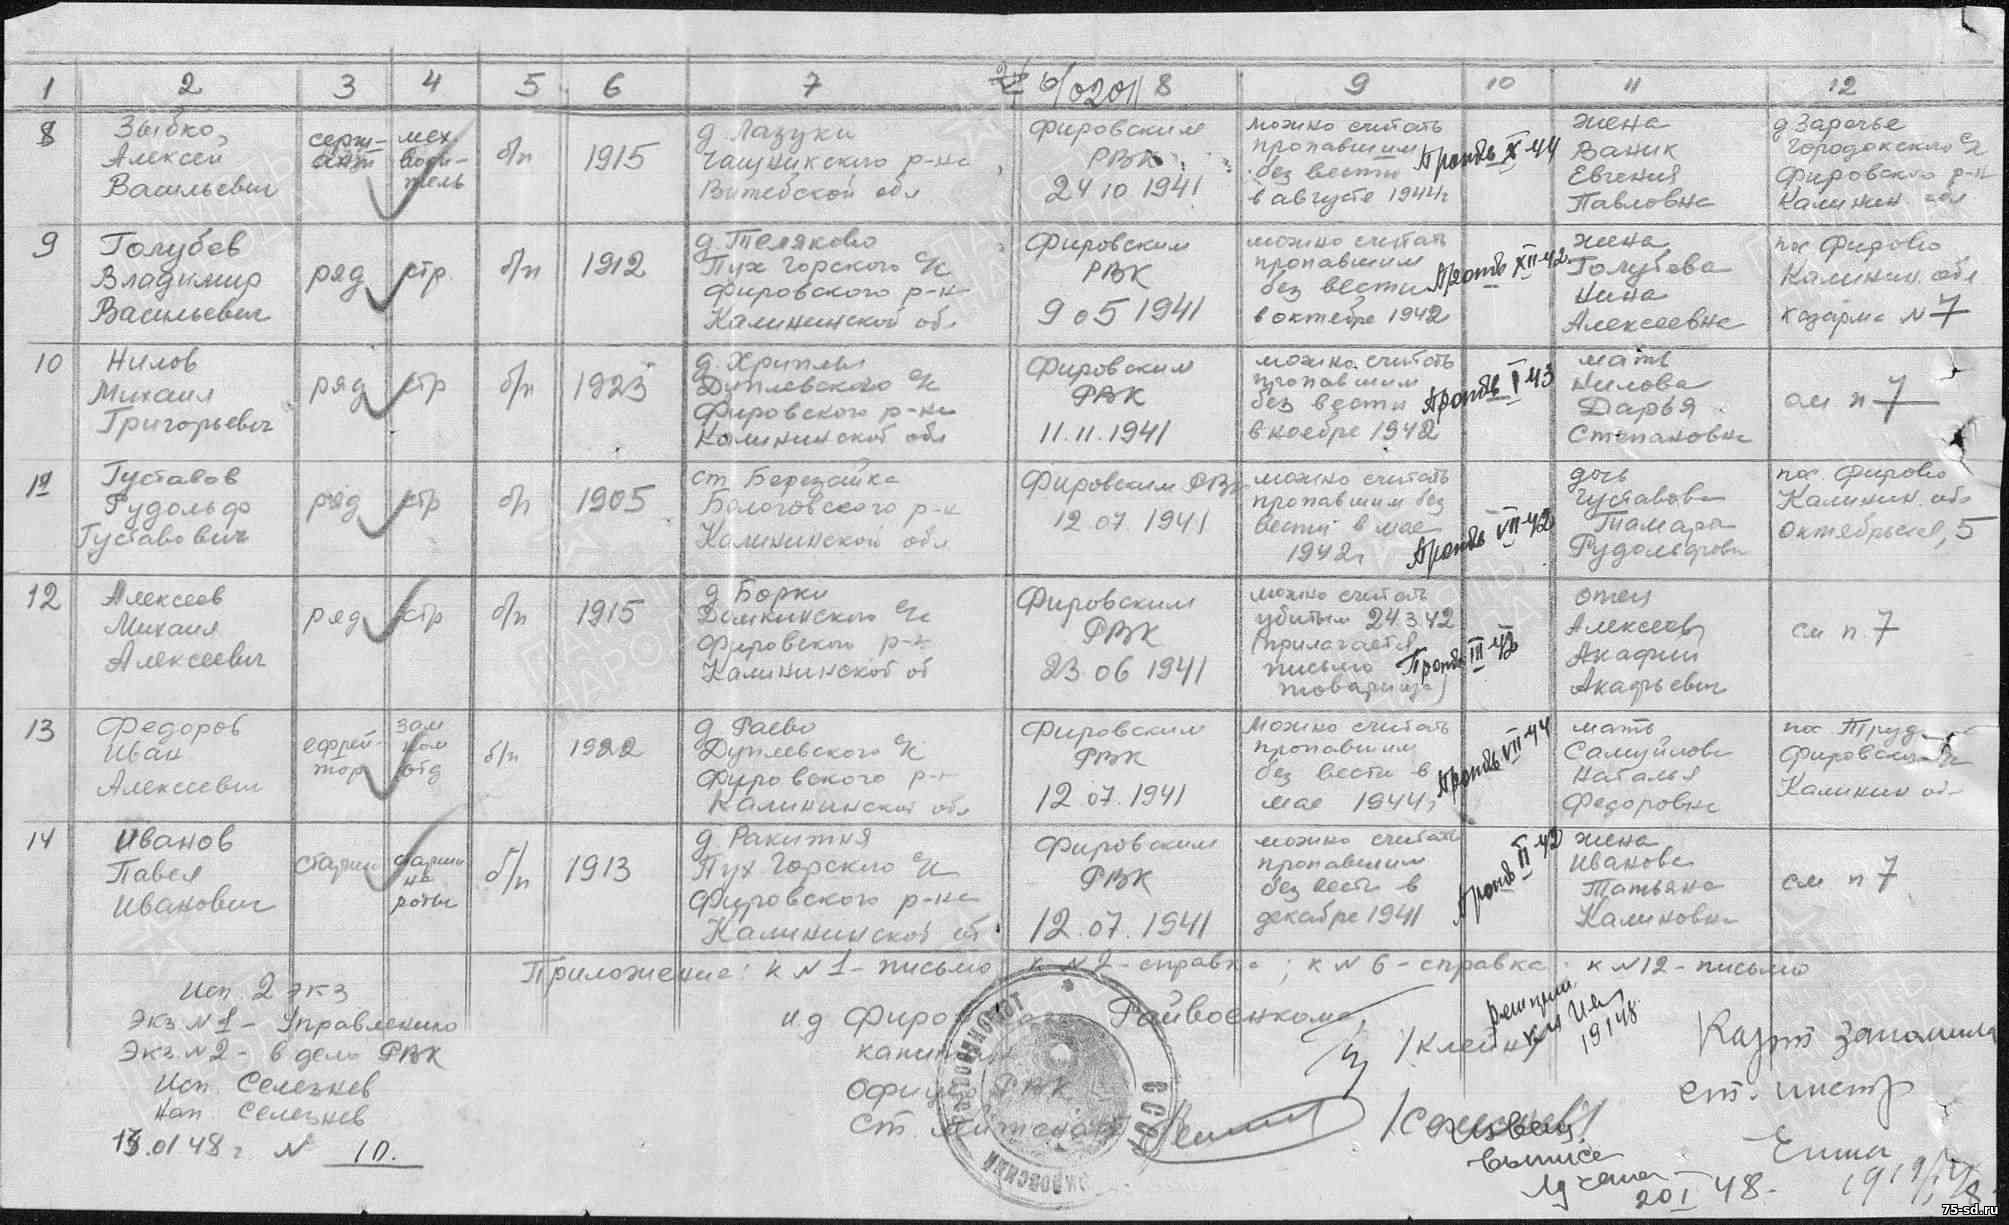 1 2 3 4 5 6 7 8 9 10 11 12
8 Зыбко Алексей Васильевич
серж-ант
мех. води-тель
б/п
1915
д. Лазуки
Чашникского р-на
Витебской обл
Фировским
РВК
24 10 1941
можно считать
пропавшим
без вести
в августе 1944г
Проп бв X-44
жена
Ваник
Евгения
Павловна
д Заречье
Городокского с/с
Фировского р-н
Калинин. обл
9 Голубев
Владимир
Васильевич
ряд
стр.
б/п
1912
д. Теляково
Пух Горского с/с
Фировского р-н
Калининской обл
Фировским
РВК
9 05 1941
можно считать
пропавшим
без вести
в октябре 1942
Проп бв XII-42
жена
Голубева
Нина
Алексеевна
пос Фирово
Калинин. обл
казарма N 7
10 Нилов
Михаил
Григорьевич
ряд
стр
б/п
1923
д. Хриплы
Дуплевского с/с
Фировского р-на
Калининской обл
Фировским
РВК
11.11.1941
можно считать
пропавшим
без вести
в ноябре 1942
Проп бв I 43
мать
Нилова
Дарья
Степановна
см п 7
11 Густавов
Рудольф
Густавович
ряд
стр
б/п
1905
ст Березайка
Бологовского р-н
Калининской обл
Фировским РВК
12.07.1941
можно считать
пропавшим без
вести в мае
1942г
Проп бв VII-42
дочь
Густавова
Тамара
Рудольфовн
пос. Фирово
Калинин. обл
Октябрьская, 5
12 Алексеев
Михаил
Алексеевич
ряд
стр
б/п
1915
д Борки
Фировского р-н
Калининской об
Фировским
РВК
23.06 1941
можно считать
убитым 24.3.42
(прилагается
письмо
товарища)
Проп бв III-42
отец
Алексеев
Акафий
Акафьевич
см п. 7
13 Федоров
Иван
Алексеевич
ефрей-
тор
зам
ком
отд
б/п
1922
д Раево
Дуплевского с/с
Фировского р-н
Калининской обл
Фировским
РВК
12.07.1941
можно считать
пропавшим
без вести в
мае 1944г
Проп бв VII-44
мать
Самуйлова
Наталья
Федоровна
пос. Труд
Фировского
Калинин об
14 Иванов
Павел
Иванович
старши
старши
на
роты
б/п
1913
д. Ракитня
Пух Горского с/с
Фировского р-на
Калининской об
Фировским
РВК
12.07.1941
можно считать
пропавшим
без вести в
декабре 1941
Проп бв II-42
жена
Иванова
Татьяна
Калиновна
см п 7
Приложение: к N 1 - письмо к N 2 - справка; к N 6 - справка к N 12 - письмо
Исп. 2 экз
Экз N 1 - Управлению
Экз. N 2 - в дело РВК
Исп. Селезнев
Нап. Селезнев
13.01 48 г N 10.
и.д Фировского Райвоенкома
капитан
/Клейн
РВК
ст лейтенант
СССР
19 I 48
ст. инстр
выписа
20 I 48.
75-sd.ru